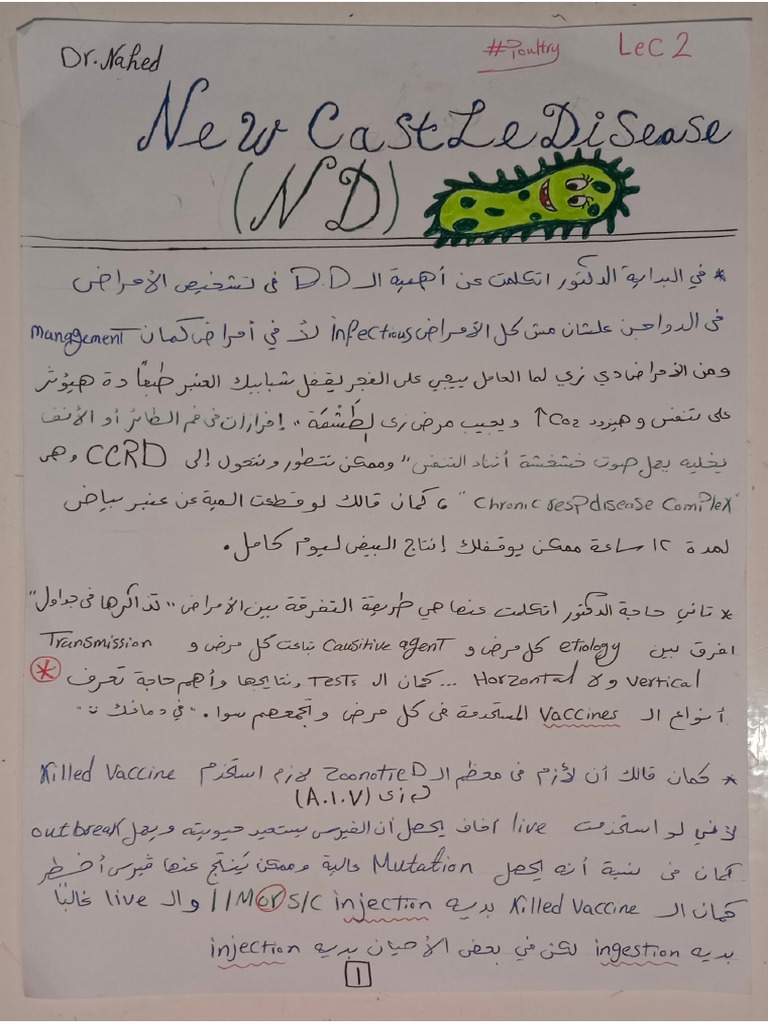 Dr. Nahed
#Poultry
Lec 2
New Castle Disease
(ND)
* في البداية الدكتور اتكلمت عن أهمية الـ D.D في تشخيص الأمراض
في الدواجن علشان مش كل الأمراض infectious لأ في أمراض كمان management
ومن الأمراض دي زي لما العامل ييجي على الفجر يقفل شبابيك العنبر طبعًا دة هيؤثر
على تنفس وهيزود Co2↑ ويجيب مرض زى الطَشْمَة ,, إفرازات فى فم الطائر أو الأنف
يخليه يعمل صوت خشخشة أثناء التنفس" وممكن تتطور وتتحول إلى CCRD وهى
"Chronic resp disease complex" ، كمان قالك لو قطعت المية عن عنبر بياض
لمدة ١٢ ساعة ممكن يوقفلك إنتاج البيض ليوم كامل.
* تاني حاجة الدكتور اتكلمت عنها هي طريقة التفرقة بين الأمراض ,, تذاكرها فى جداول"
افرق بين etiology كل مرض و Causitive agent بتاعت كل مرض و Transmission
Vertical ولا Horzontal ... كمان الـ Tests ونتايجها وأهم حاجة تعرف *
أنواع الـ Vaccines المستخدمة فى كل مرض وتجمعهم سوا. "في دماغك"
* كمان قالك أن لأزم فى معظم الـ Zoonotic D لازم استخدم Killed Vaccine
زى (A.I.V)
لأني لو استخدمت live أخاف يحصل أن الفيرس يستعيد حيويته ويعمل outbreak
كمان فى نسبة أنه يحصل Mutation عالية وممكن يَنتِج عنها ڤيرس أخطر
كمان الـ Killed Vaccine بديه injection I/M or S/C والـ live غالبًا
بديه ingestion لكن في بعض الأحيان بديه injection
1